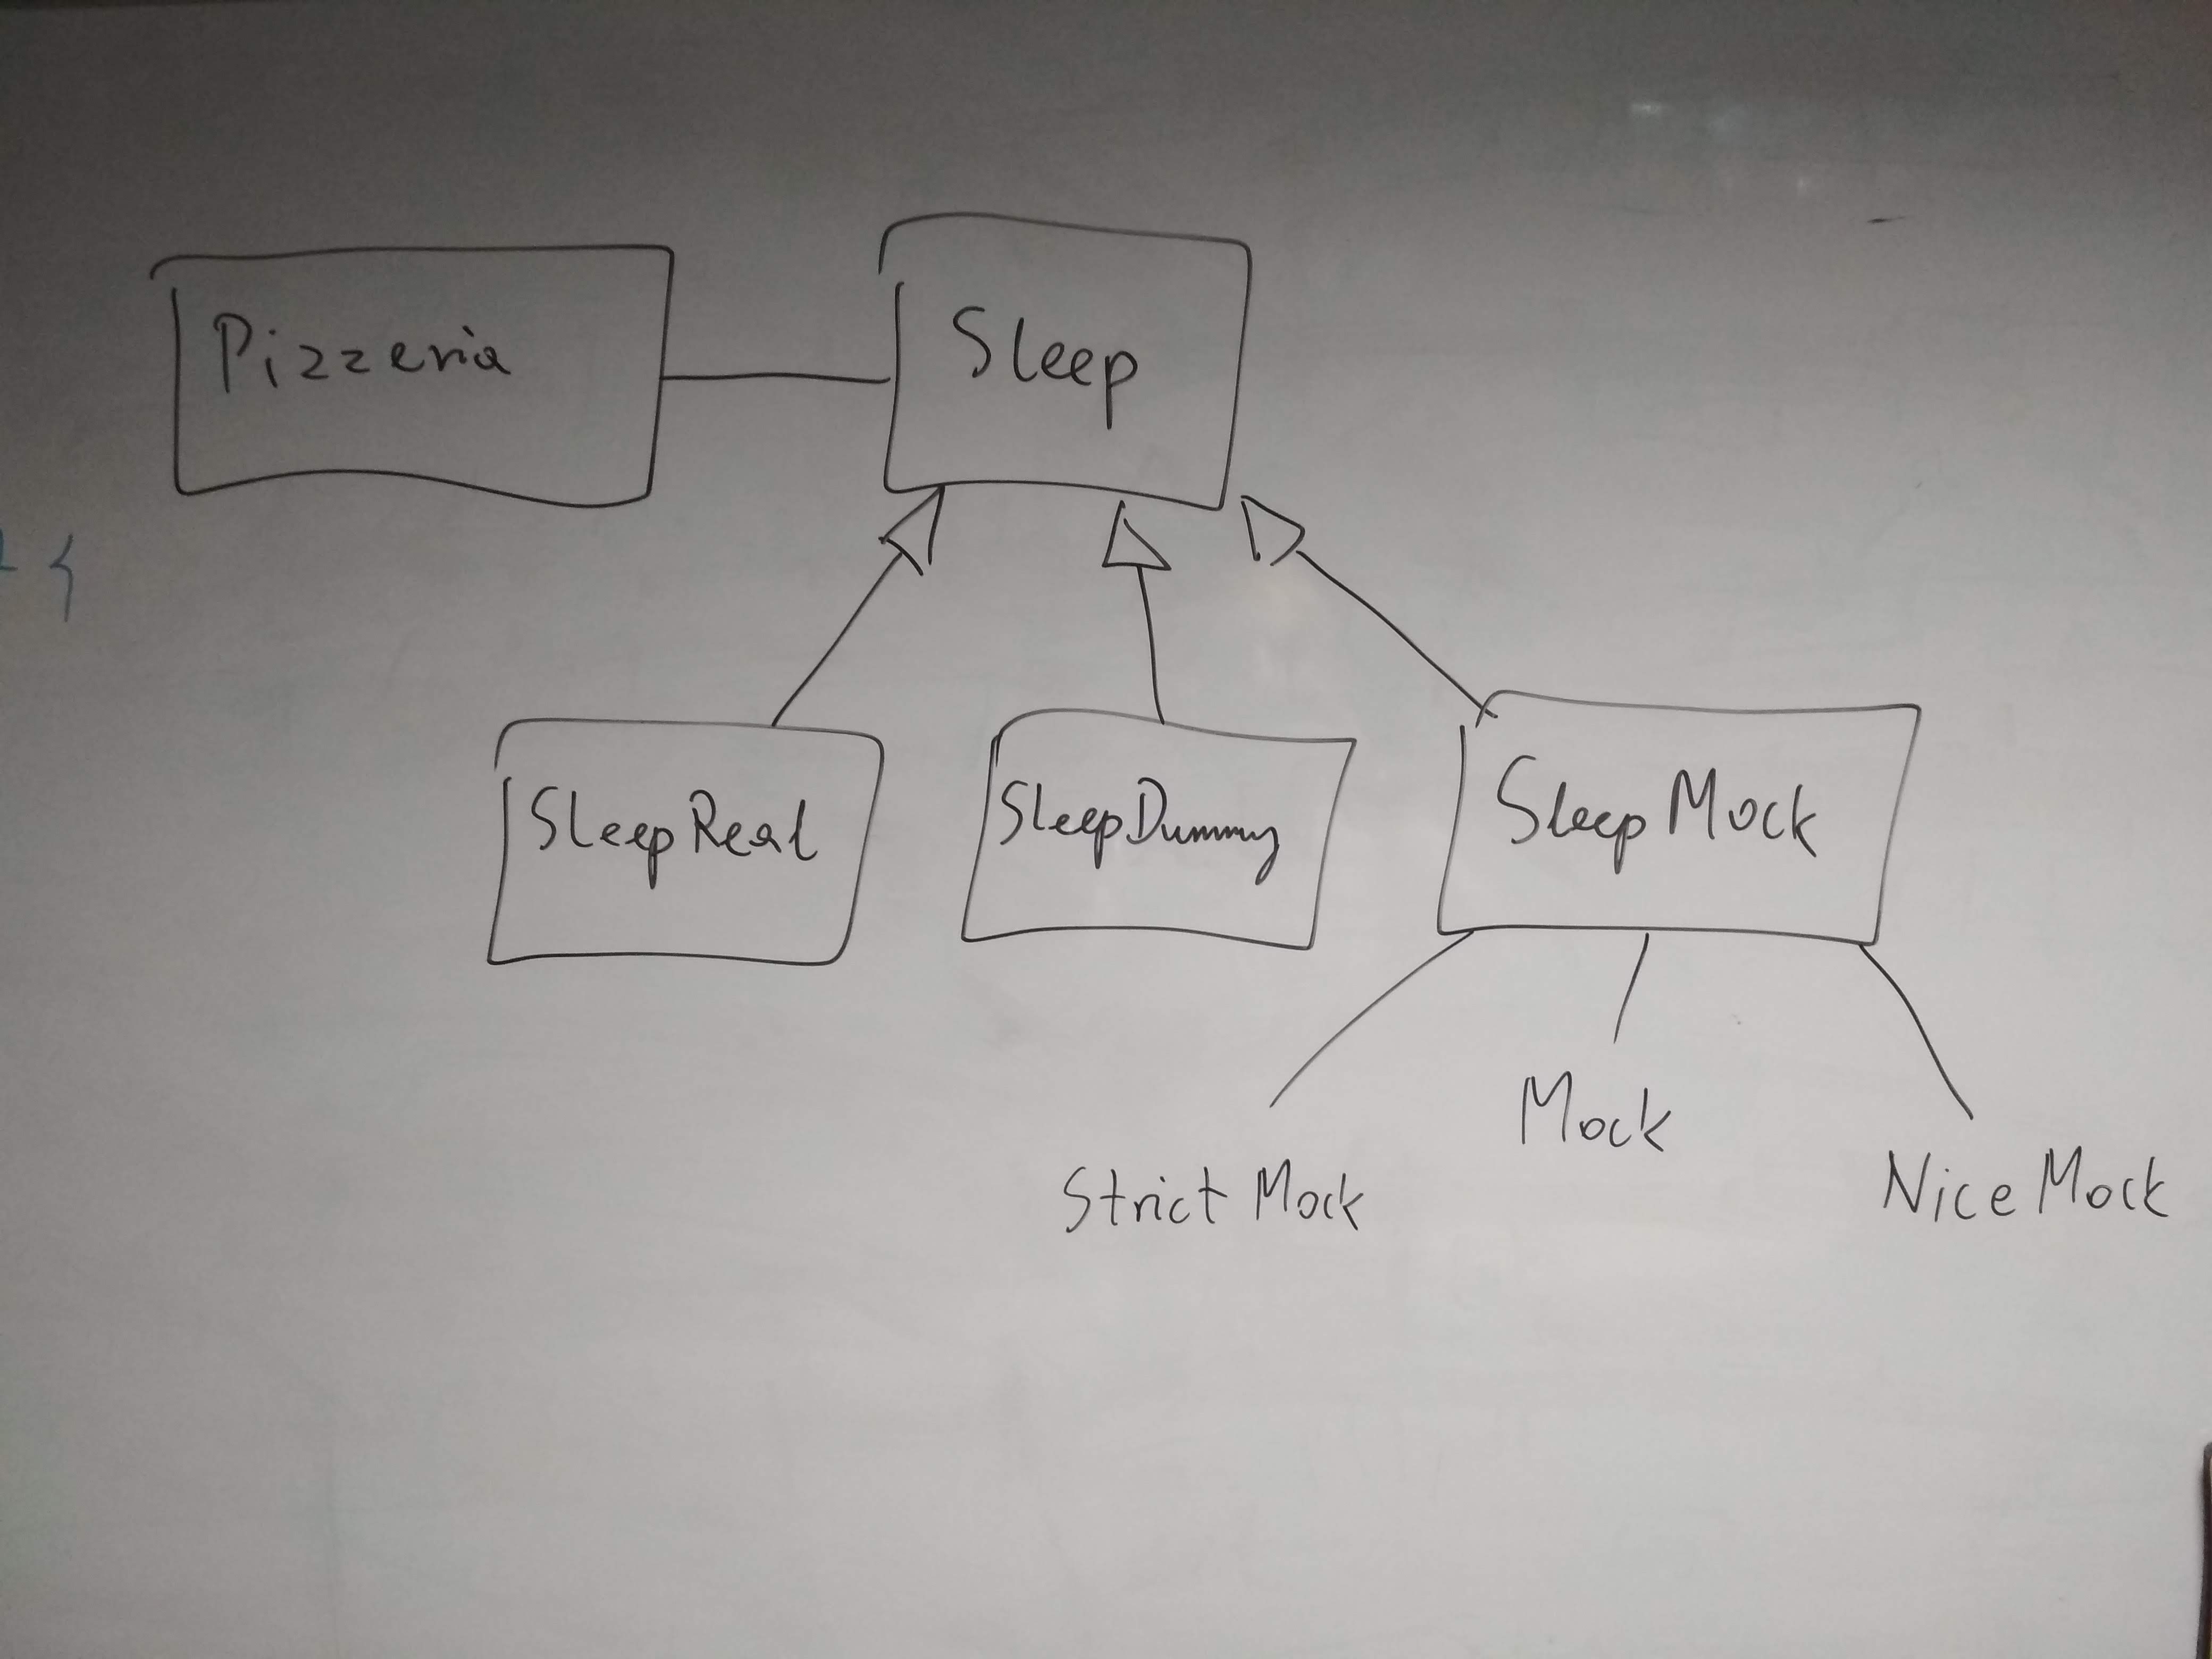 Pizzeria
Sleep
SleepReal
SleepDummy
SleepMock
Mock
Strict Mock
Nice Mock